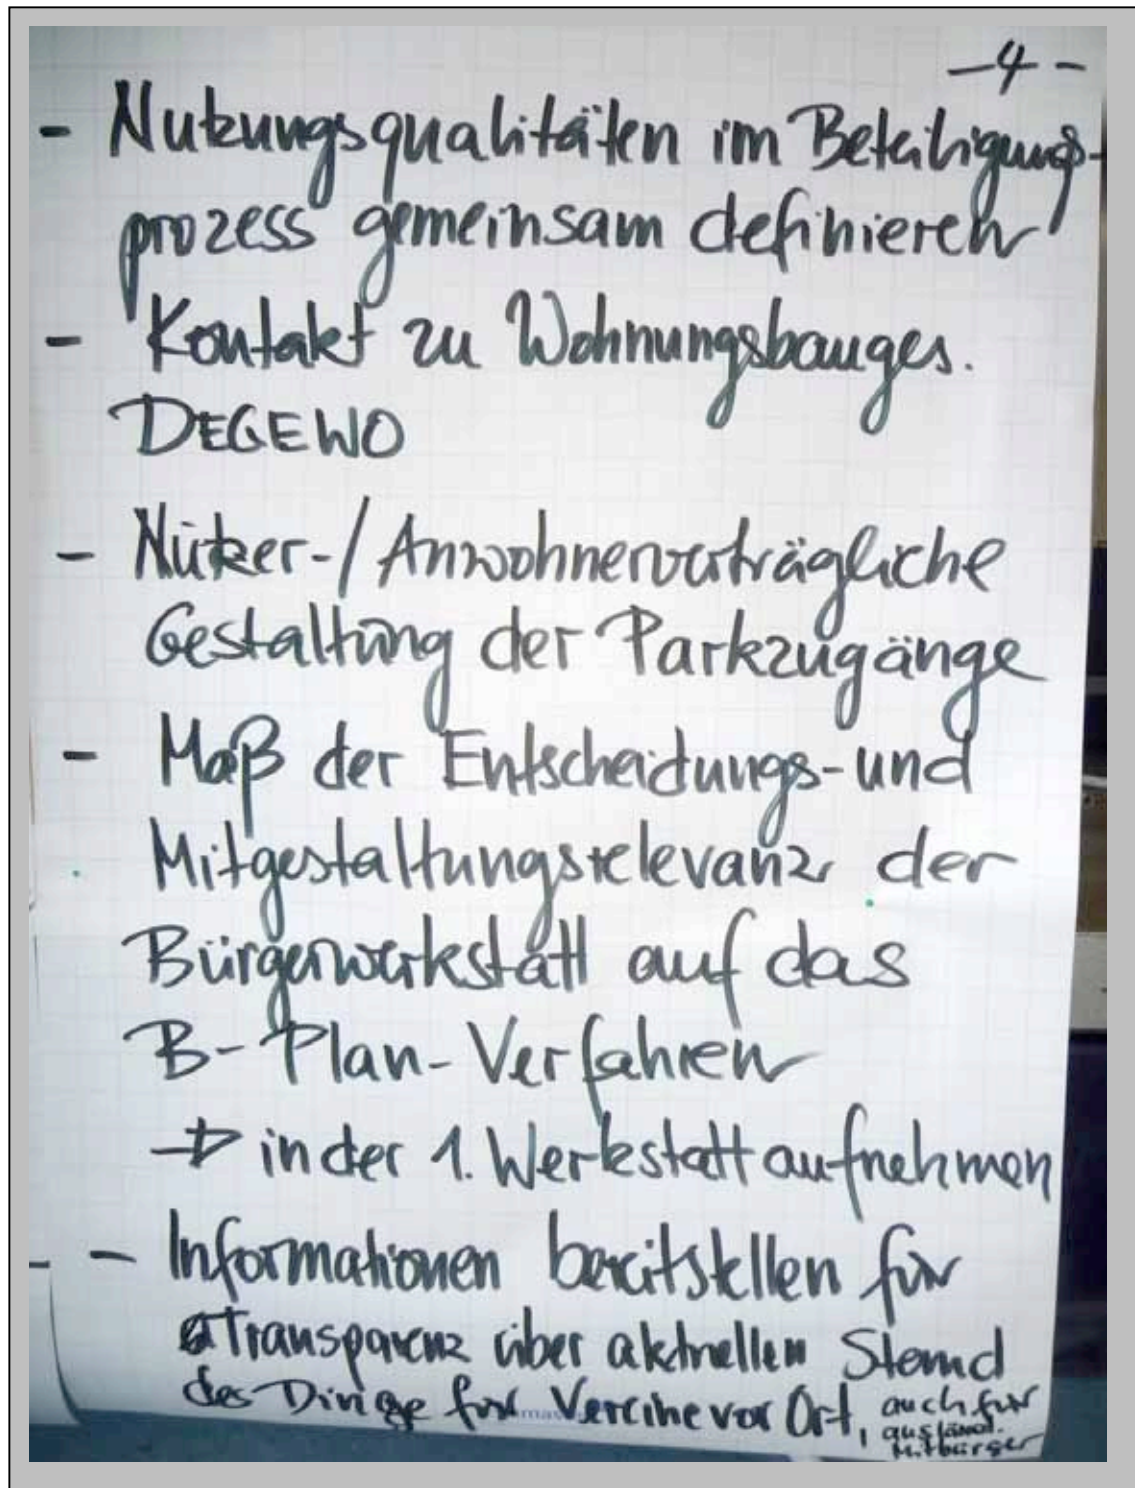 -4-
- Nutzungsqualitäten im Beteiligungs-
prozess gemeinsam definieren
- Kontakt zu Wohnungsbauges.
DEGEWO
- Nutzer-/Anwohnerverträgliche
Gestaltung der Parkzugänge
- Maß der Entscheidungs- und
Mitgestaltungsrelevanz der
Bürgerwerkstatt auf das
B-Plan-Verfahren
→ in der 1. Werkstatt aufnehmen
- Informationen bereitstellen für
Transparenz über aktuellen Stand
des Dinge für Vereine vor Ort, auch für
ausländ.
Mitbürger